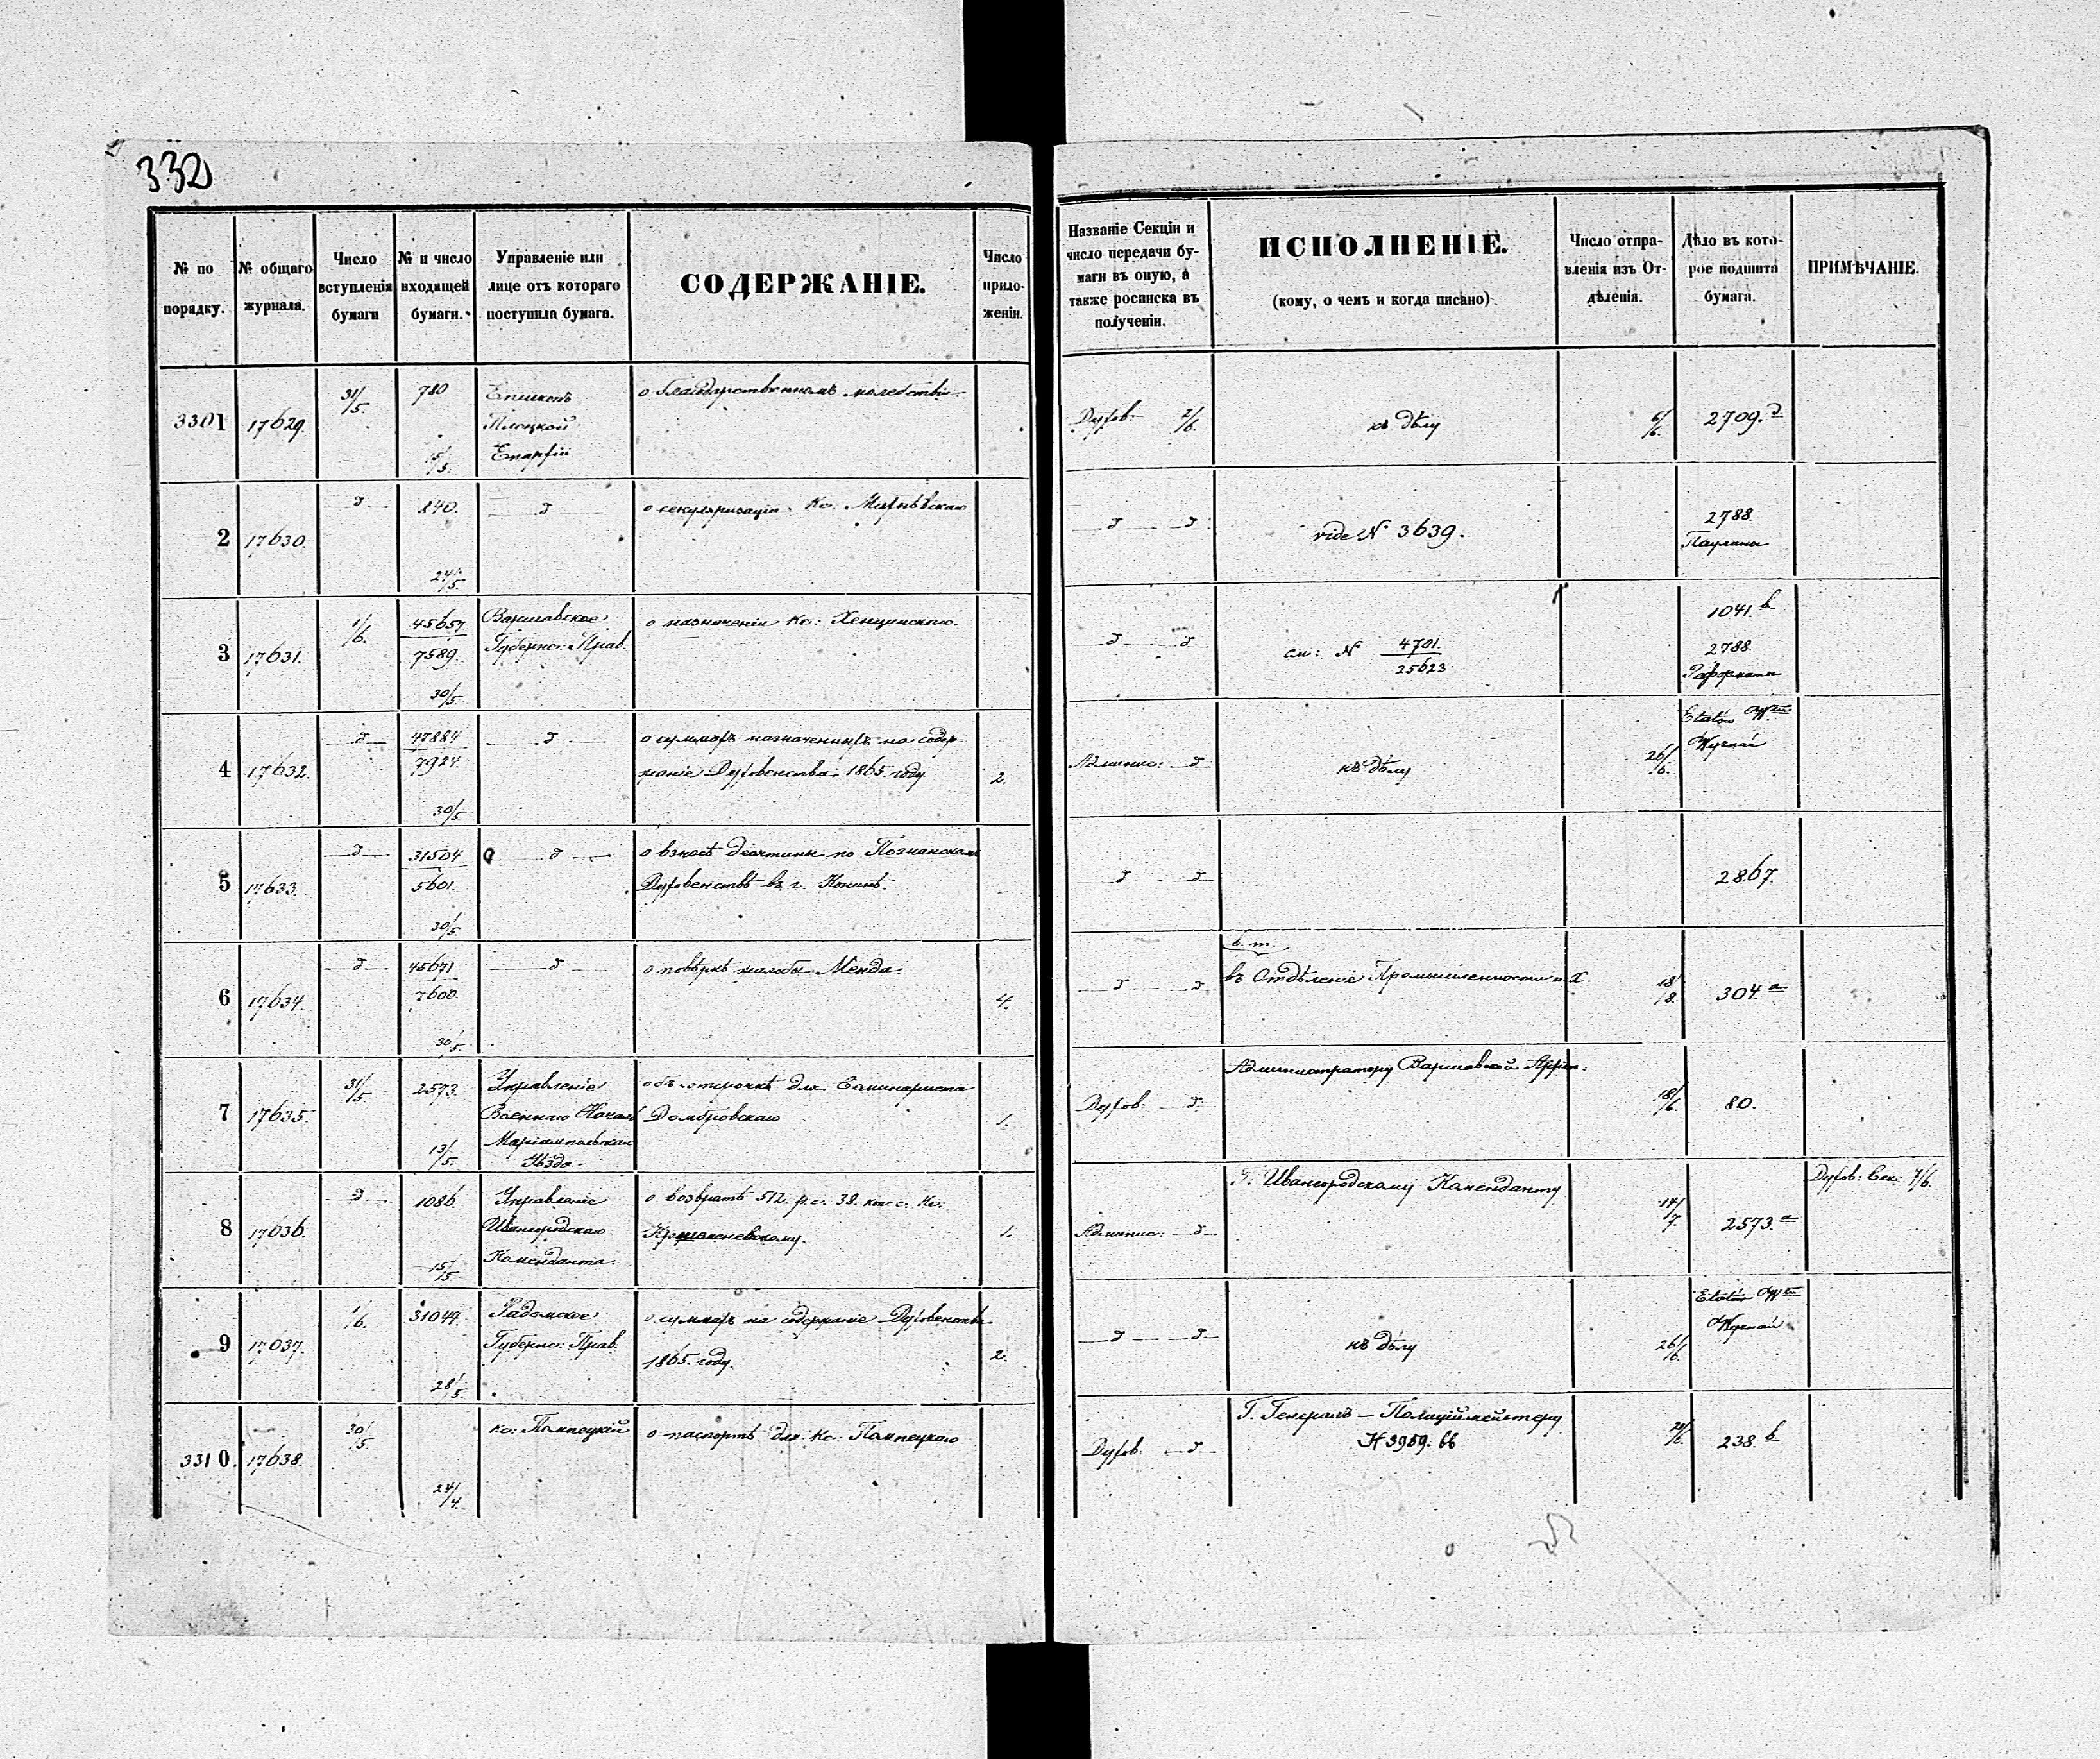 332
№ по порядку.
№ общаго журнала.
Число вступленія бумаги
№ и число входящей бумаги.
Управленіе или лице отъ котораго поступила бумага.
СОДЕРЖАНІЕ.
Число прило-женіи.
Названіе Секціи и число передачи бу-маги въ оную, а также росписка въ полученіи.
ИСПОЛНЕНІЕ.
(кому, о чемъ и когда писано)
Число отпра-вленія изъ От-дѣленія.
Дѣло въ кото-рое подшита бумага.
ПРИМѢЧАНІЕ.
3301 17629. 31/5. 780 15/5. Епископъ Плоцкой Епархіи
о благодарственномъ молебствіи
Духов. 2/6. къ дѣлу 6/6. 2709. д
2 17630. д 840. 24/5. д
о секуляризаціи Кс.
д д vide N 3639. 2788. Паулина
3 17631. 1/6. 45657 7589. 30/5. Варшавское Губернс: Прав.
о назначеніи Кс: Хенцинскаго.
д д см: N 4701. 25623 1041. b 2788. Реформаты
4 17632. д 47884 7924. 30/5. д
о суммахъ назначенныхъ на содер-
жаніе Духовенства 1865. году 2.
Админис: д къ дѣлу 26/6. Etatów
5 17633. д 31504 5601. 30/5. д
о взносѣ десятины по Познанскому
Духовенствѣ въ г. Конинѣ.
д д 2867.
6 17634. д 45671 7600. 30/5. д
о повѣркѣ жалобы Менда. 4.
д д в. т.
въ Отдѣленіе Промышленности и Х. 18/8. 304. a
7 17635. 31/5. 2573. 13/5. Управленіе
Военнаго Начал.
Маріампольскаго
Уѣзда.
объ отсрочкѣ для Семинариста
Домбровскаго 1.
Духов. д Администратору Варшавской Архіеп: 18/6. 80.
8 17636. д 1086. 15/15. Управленіе
Ивангородскаго
Коменданта.
о возвратѣ 512. р. с. 38. коп. с. Кс:
1.
Админис: д Г. Ивангородскому Коменданту 14/7. 2573. a Духов: Сек: 7/6.
9 17637. 1/6. 31044. 28/5. Радомское
Губернс: Прав.
о суммахъ на содержаніе Духовенства
1865. году. 2.
д д къ дѣлу 26/6. Etatów
3310. 17638. 30/5. 24/4. кс: Пампецкій
о паспортѣ для Кс: Пампецкаго
Духов. д Г. Генералъ — Полиціймейстеру
N 3959. bb 238. b